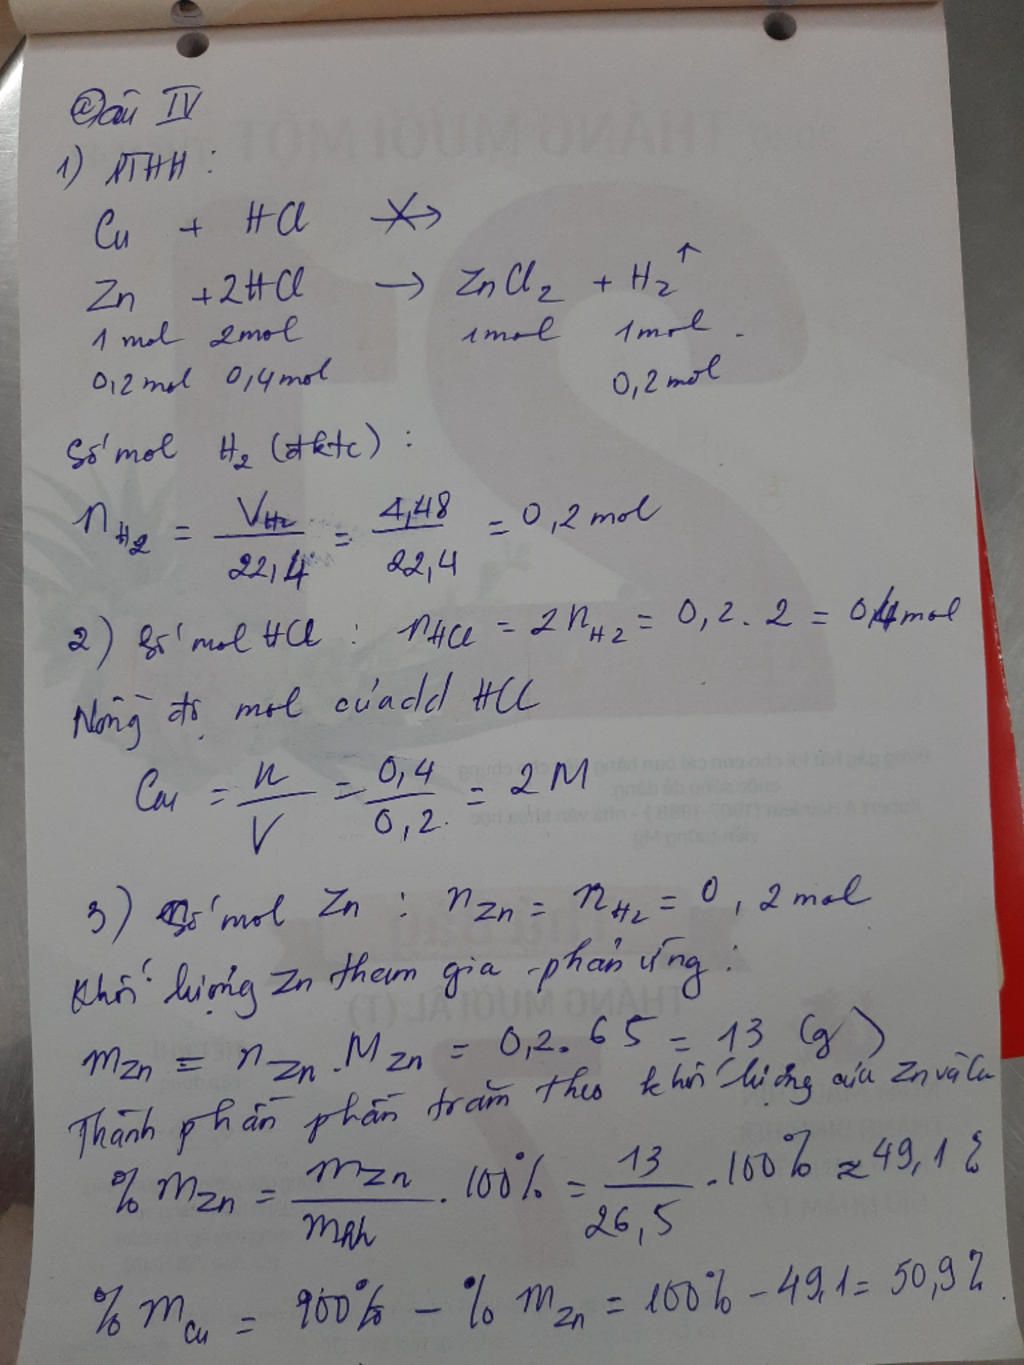 Câu IV
1) PTHH :
Cu + HCl -X->
Zn + 2HCl → ZnCl₂ + H₂↑
1 mol 2mol 1mol 1mol .
0,2mol 0,4mol 0,2mol
Số mol H₂ (đktc) :
n_H₂ = V_H₂/22,4 = 4,48/22,4 = 0,2 mol
2) Số mol HCl : n_HCl = 2n_H₂ = 0,2 . 2 = 0,4 mol
Nồng độ mol của dd HCl
C_M = n/V = 0,4/0,2 = 2M
3) Số mol Zn : n_Zn = n_H₂ = 0,2mol
Khối lượng Zn tham gia phản ứng :
m_Zn = n_Zn . M_Zn = 0,2 . 65 = 13 (g)
Thành phần phần trăm theo khối lượng của Zn và Cu
% m_Zn = m_Zn/m_hh . 100% = 13/26,5 . 100% ≈ 49,1%
% m_Cu = 100% - % m_Zn = 100% - 49,1 = 50,9%